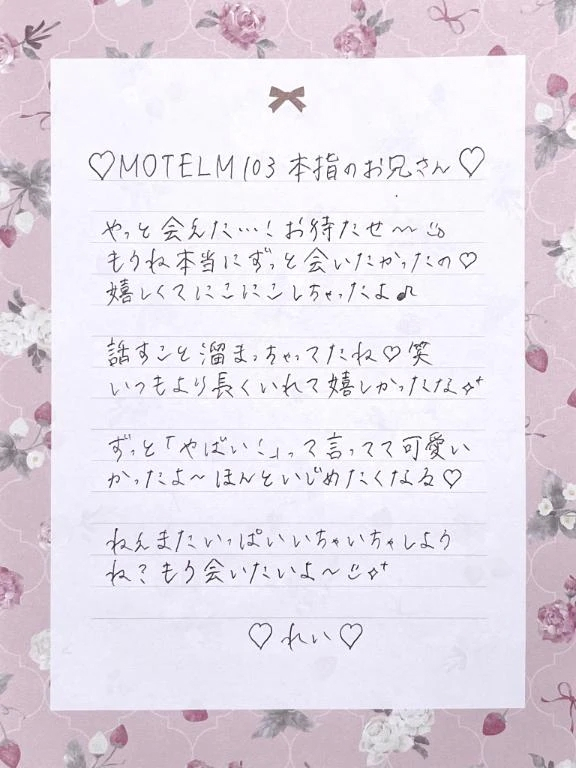 ♡MOTELM 103 本指のお兄さん♡
やっと会えた…！お待たせ〜
もうね本当にずっと会いたかったの♡
嬉しくてにこにこしちゃったよ♪
話すこと溜まっちゃってたね♡笑
いつもより長くいれて嬉しかったな
ずっと「やばい！」って言ってて可愛い
かったよ〜ほんといじめたくなる♡
ねえまたいっぱいいちゃいちゃしよう
ね？もう会いたいよ〜
♡れい♡